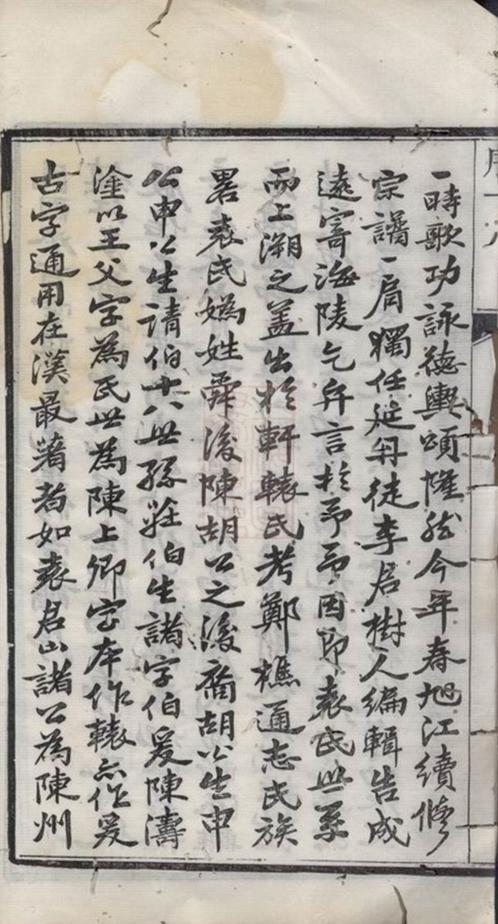 一時歌功詠德輿頌隆然今年春旭江續修
宗譜一肩獨任延丹徒李君樹人編輯告成
遠寄海陵乞弁言於予予因即袁氏世系
而上溯之蓋出於軒轅氏考鄭樵通志氏族
畧袁氏媯姓舜後陳胡公之後裔胡公生申
公申公生請伯十八世孫莊伯生諸字伯爰陳濤
塗以王父字為氏世為陳上卿它本作轅亦作爰
古字通用在漢最著者如袁君山諸公為陳州